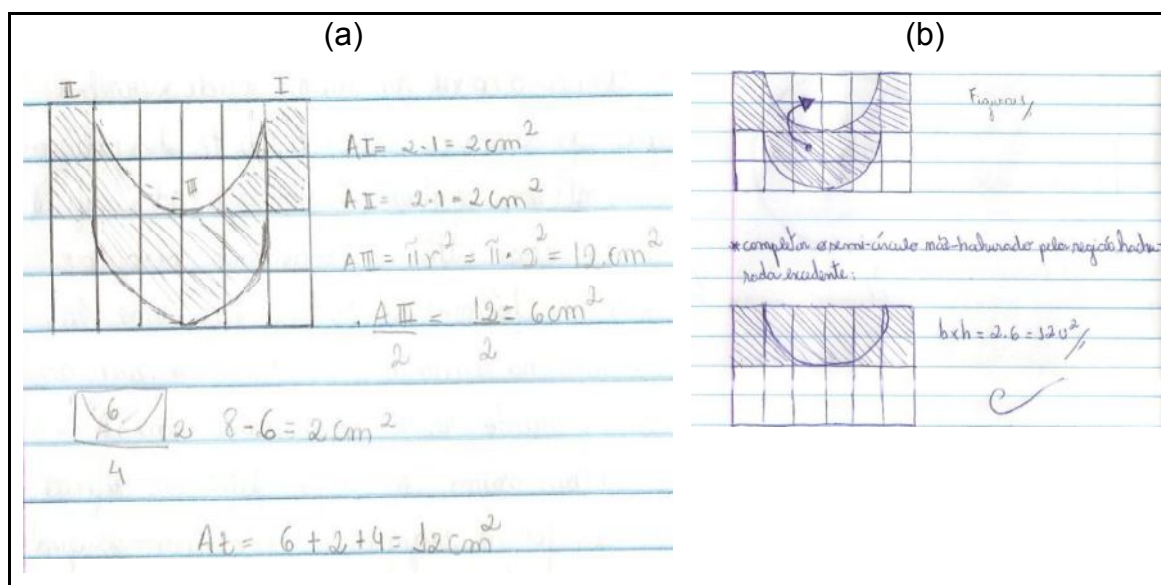 (a)
II I
III
AI = 2·1 = 2cm²
AII = 2·1 = 2cm²
AIII = πr² = π·2² = 12cm²
AIII/2 = 12/2 = 6cm²
6 2 8-6 = 2cm²
4
At = 6+2+4 = 12cm²
(b)
Figuras
*completar o semi-círculo não-hachurado pela região hachu-
rada excedente:
bxh = 2.6 = 12u²